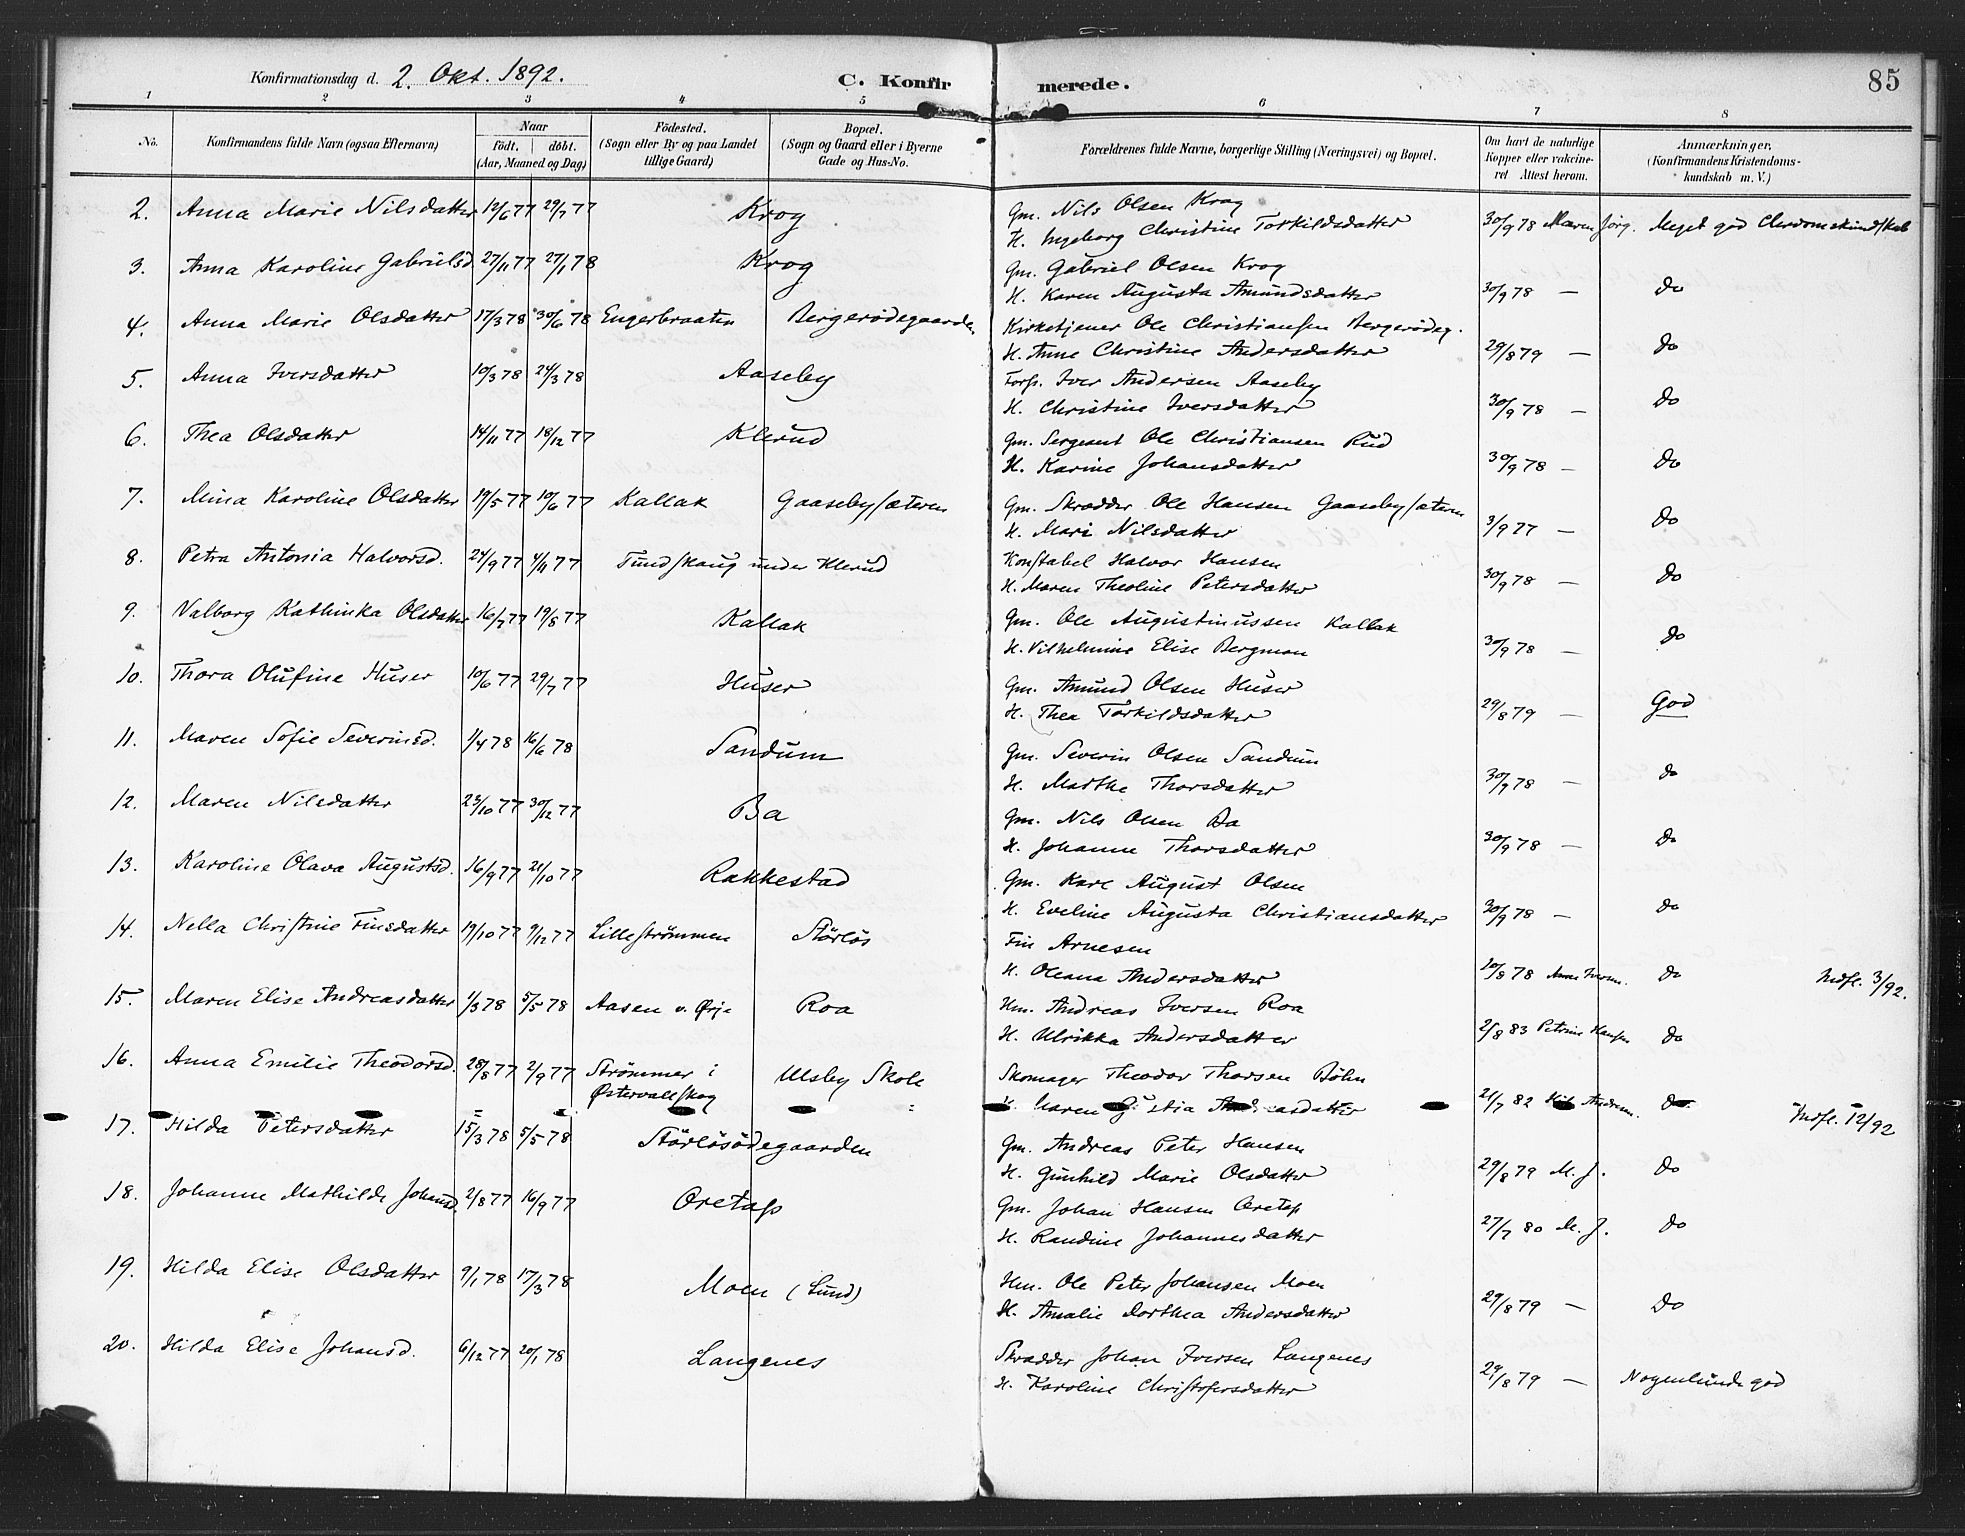 Konfirmationsdag d. 2. Okt. 1892.
C. Konfirmerede.
85
1 2 3 4 5 6 7 8
No.
Konfirmandens fulde Navn (ogsaa Efternavn)
Naar
født. døbt.
(Aar, Maaned og Dag)
Fødested.
(Sogn eller By og paa Landet
tillige Gaard)
Bopæl.
(Sogn og Gaard eller i Byerne
Gade og Hus-No.
Forældrenes fulde Navne, borgerlige Stilling (Næringsvei) og Bopæl.
Om havt de naturlige
Kopper eller vakcine-
ret Attest herom.
Anmærkninger.
(Konfirmandens Kristendoms-
kundskab m. V.)
2. Anna Marie Nilsdatter 12/6 77 29/7 77 Krog Gm. Nils Olsen Krog
H. Ingeborg Christine Torkildsdatter 30/9 78 Maren Jörg. Meget god Chrdomskundskab
3. Anna Karoline Gabrielsd. 27/11 77 27/1 78 Krog Gm. Gabriel Olsen Krog
H. Karen Augusta Amundsdatter 30/9 78 — Do
4. Anna Marie Olsdatter 17/3 78 30/6 78 Engerbraaten Bergerødegaarden Kirketjener Ole Christiansen Bergerødeg.
H. Anne Christine Andersdatter 29/8 79 — Do
5. Anna Iversdatter 10/3 78 24/3 78 Aaseby Forp. Iver Andersen Aaseby
H. Christine Iversdatter 30/9 78 — Do
6. Thea Olsdatter 14/11 77 18/12 77 Klerud Gm. Sergeant Ole Christiansen Rud
H. Karine Johansdatter 30/9 78 — Do
7. Mina Karoline Olsdatter 19/5 77 10/6 77 Kallak Gaasebysæteren Gm. Skrædder Ole Hansen Gaasebysæteren
H. Mari Nilsdatter 3/9 77 — Do
8. Petra Antonia Halvorsd. 24/9 77 4/11 77 Tundskaug under Klerud Konstabel Halvor Hansen
H. Maren Theoline Petersdatter 30/9 78 — Do
9. Valborg Kathinka Olsdatter 16/7 77 19/8 77 Kallak Gm. Ole Augustinussen Kallak
H. Vilhelmine Elise Bergman 30/9 78 — Do
10. Thora Olufine Huser 10/6 77 29/7 77 Huser Gm. Amund Olsen Huser
H. Thea Torkildsdatter 29/8 79 — God
11. Maren Sofie Severinsd. 1/4 78 16/6 78 Sandum Gm. Severin Olsen Sandum
H. Marthe Thorsdatter 30/9 78 — do
12. Maren Nilsdatter 23/10 77 30/12 77 Ba Gm. Nils Olsen Ba
H. Johanne Thorsdatter 30/9 78 — Do
13. Karoline Olava Augustsd. 16/9 77 21/10 77 Rakkestad Gm. Karl August Olsen
H. Eveline Augusta Christiansdatter 30/9 78 — do
14. Nella Christine Finsdatter 19/10 77 9/12 77 Lillestrømmen Störlös Fin Arnesen
H. Oleana Andersdatter 20/8 78 Do Indfl. 3/92.
15. Maren Elise Andreasdatter 1/3 78 5/5 78 Aasen v. Ørje Roa Hm. Andreas Iversen Roa
H. Ulrikka Andersdatter 2/8 83 Petrine Hansen Do
16. Anna Emilie Theodorsd. 28/8 77 2/9 77 Strömmer i
Østervallskog Ulsby Skole Skomager Theodor Thorsen Böhn
H. Maren 21/7 82 Indfl. 12/92
17. Hilda Petersdatter 15/3 78 5/5 78 Störlösødegaarden Gm. Andreas Peter Hansen
H. Gunhild Marie Olsdatter 29/8 79 M. J. Do
18. Johanne Mathilde Johansd. 2/8 77 16/9 77 Oretop Gm. Johan Hansen Oretop
H. Randine Johannesdatter 27/7 80 M. J. Do
19. Hilda Elise Olsdatter 9/1 78 17/3 78 Moen (Lund) Hm. Ole Peter Johansen Moen
H. Amalie Dorthea Andersdatter 29/8 79 — Do
20. Hilda Elise Johansd. 6/12 77 20/1 78 Langenes Skrædder Johan Iversen Langenes
H. Karoline Christofersdatter 29/8 79 — Nogenlunde god